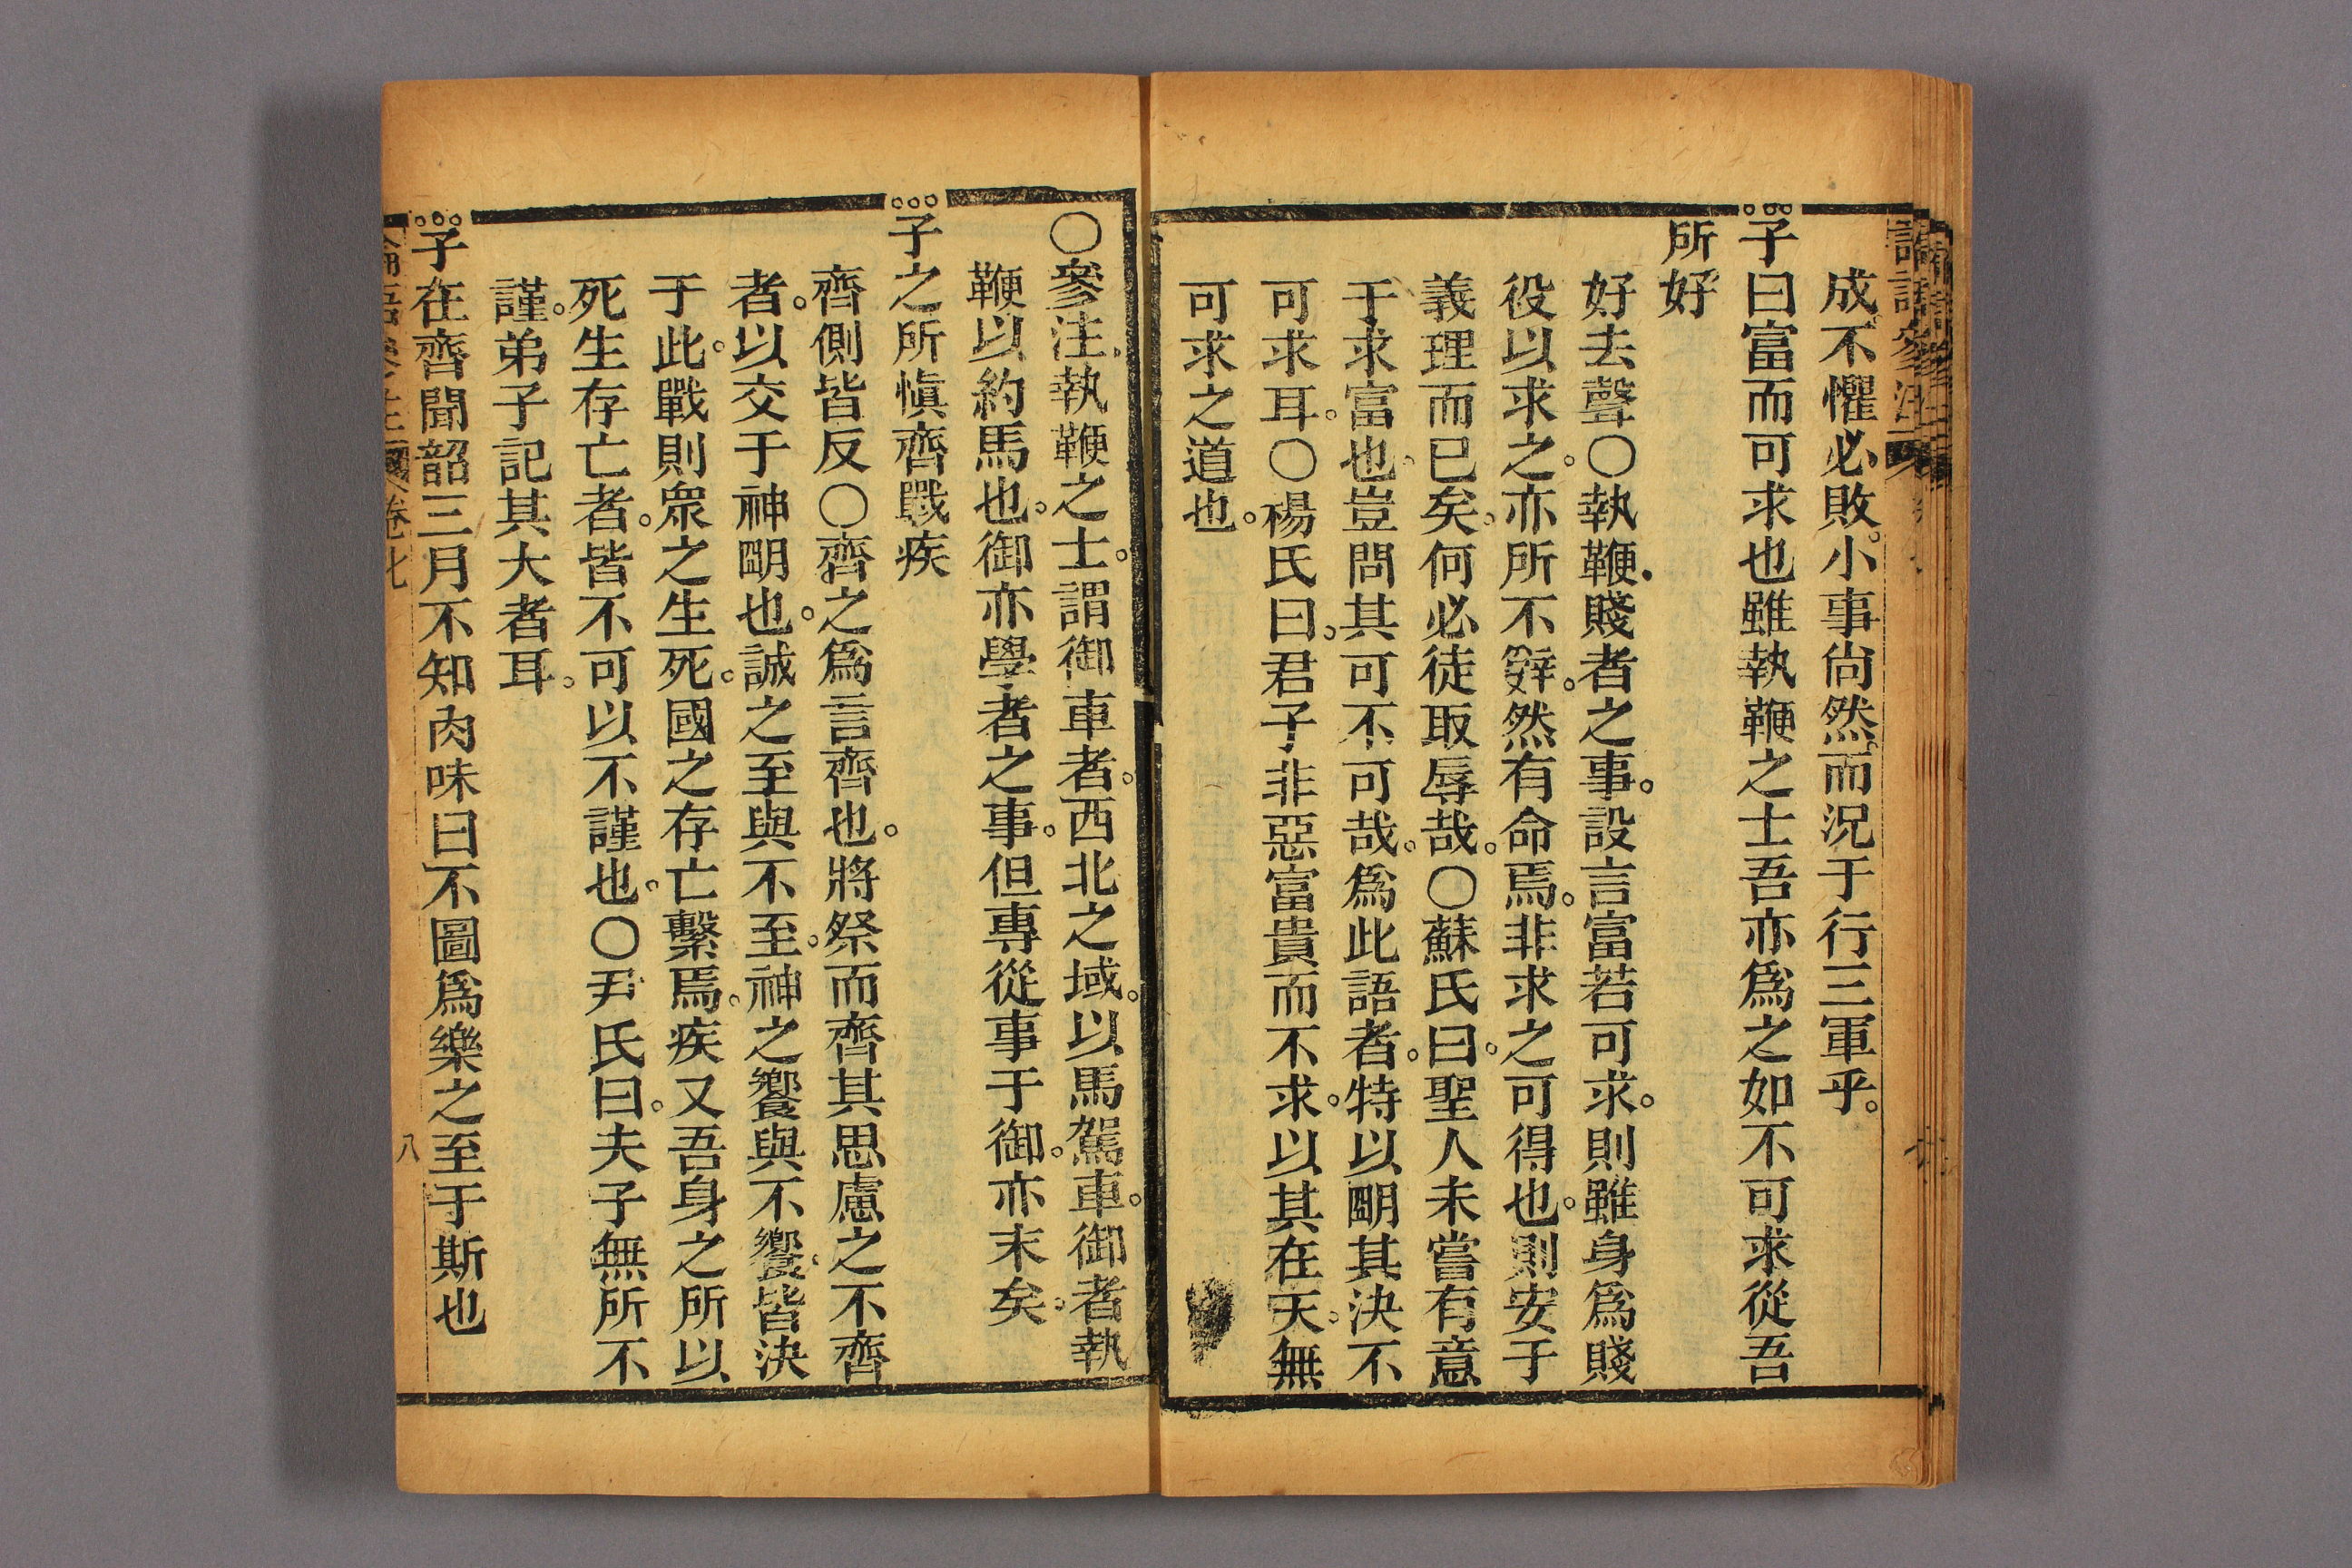 成。不懼必敗。小事尙然。而況于行三軍乎。
子曰富而可求也雖執鞭之士吾亦爲之如不可求從吾
所好
好去聲○執鞭。賤者之事。設言富若可求。則雖身爲賤
役以求之。亦所不辤。然有命焉。非求之可得也。則安于
義理而已矣。何必徒取辱哉。○蘇氏曰。聖人未嘗有意
于求富也。豈問其可不可哉。爲此語者。特以朙其決不
可求耳。○楊氏曰。君子非惡富貴而不求。以其在天。無
可求之道也。
○參注。執鞭之士。謂御車者。西北之域。以馬駕車。御者執
鞭以約馬也。御亦學者之事。但專從事于御。亦末矣。
子之所愼齊戰疾
齊側皆反○齊之爲言齊也。將祭而齊其思慮之不齊
者。以交于神朙也。誠之至與不至。神之饗與不饗。皆決
于此。戰則衆之生死。國之存亡繫焉。疾又吾身之所以
死生存亡者。皆不可以不謹也。○尹氏曰。夫子無所不
謹。弟子記其大者耳。
子在齊聞韶三月不知肉味曰不圖爲樂之至于斯也
卷七
八